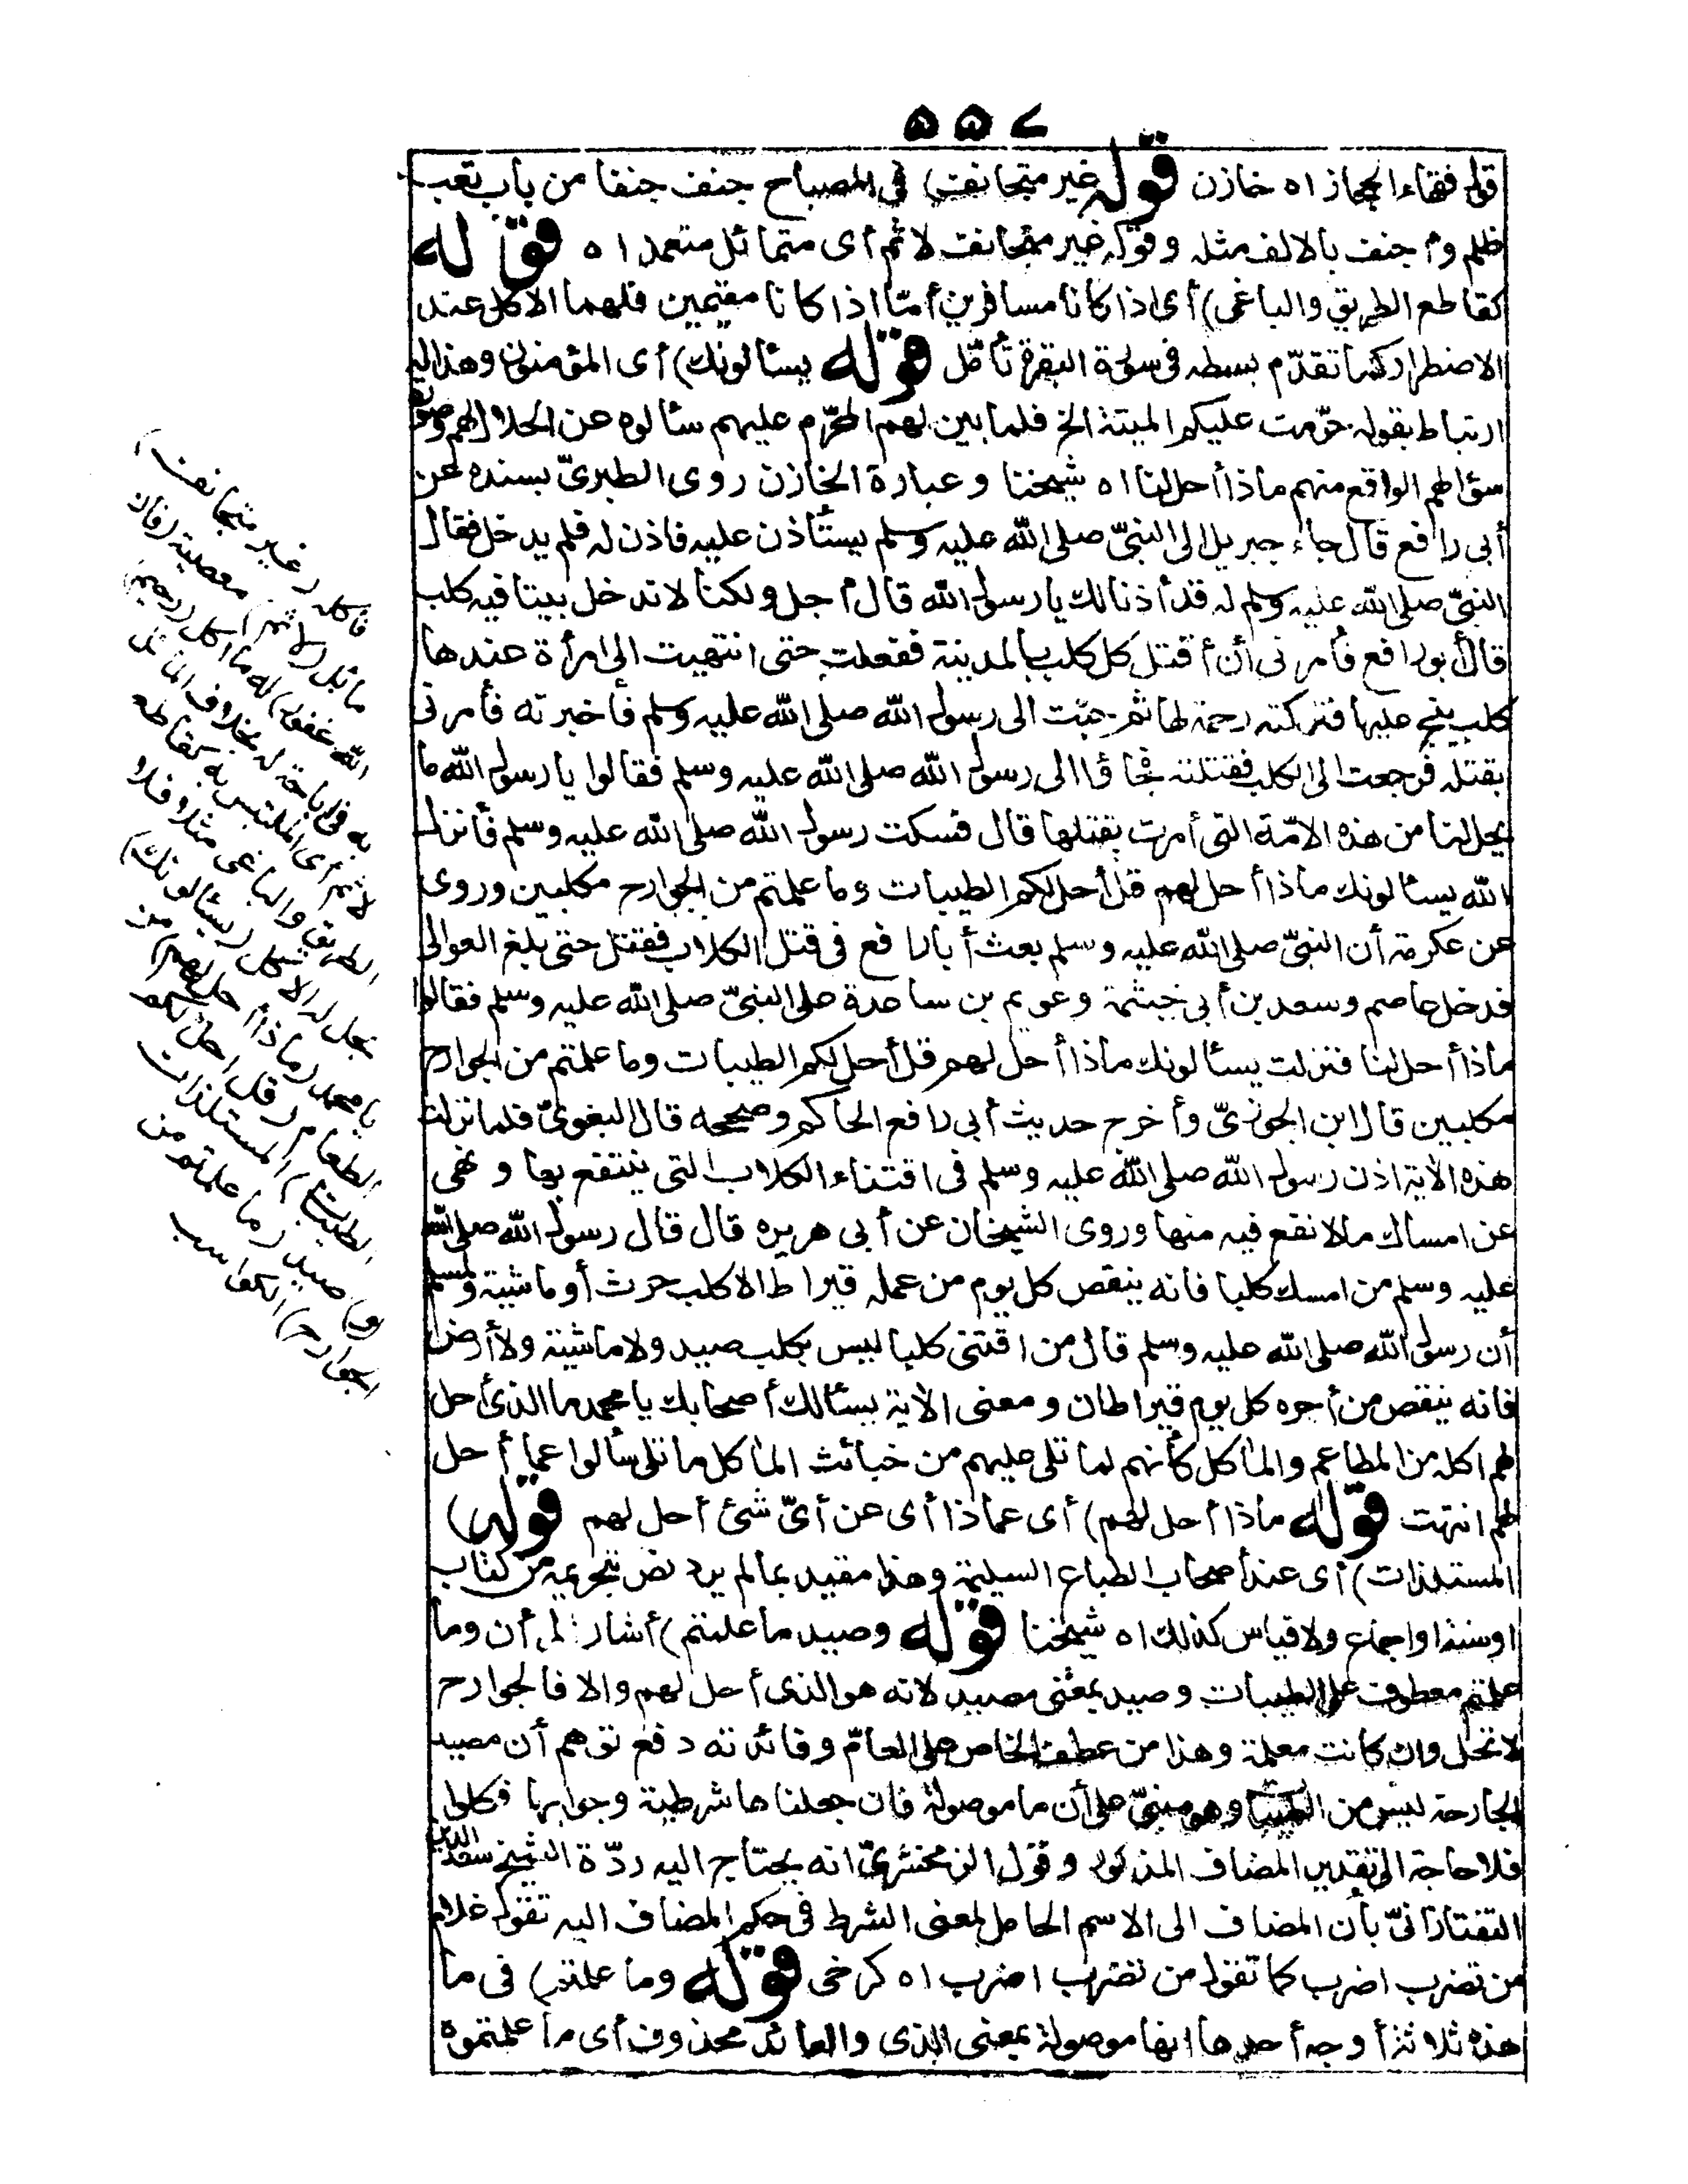 ٥٥٧
قول فقهاء الحجاز اه خازن قوله غير متجانف) في المصباح جنف جنفا من باب تعب
ظلم وأجنف بالالف مثله وقوله غير متجانف لاثم أى متمائل متعمد اه قوله
كقاطع الطريق والباغى) أى اذا كانا مسافرين أمّا اذا كانا مقيمين فلهما الاكل عند
الاضطرار كما تقدّم بسطه فى سورة البقرة تأمّل قوله يسئالونك) أى المؤمنون وهذا له
ارتباط بقوله حرّمت عليكم الميتة الخ فلما بين لهم المحرّم عليهم سئالوه عن الحلال لهم وصورة
سؤالهم الواقع منهم ماذا أحل لنا اه شيخنا وعبارة الخازن روى الطبرىّ بسنده عن
أبى رافع قال جاء جبريل الى النبىّ صلى الله عليه وسلم يستأذن عليه فاذن له فلم يدخل فقال
النبىّ صلى الله عليه وسلم له قد أذنا لك يا رسول الله قال أجل ولكنا لا ندخل بيتا فيه كلب
قال أبو رافع فأمرنى أن أقتل كل كلب بالمدينة ففعلت حتى انتهيت الى امرأة عندها
كلب ينبح عليها فتركته رحمة لها ثم جئت الى رسول الله صلى الله عليه وسلم فأخبرته فأمرنى
بقتله فرجعت الى الكلب فقتلته فجاؤا الى رسول الله صلى الله عليه وسلم فقالوا يا رسول الله ما
يحل لنا من هذه الامّة التى أمرت بقتلها قال فسكت رسول الله صلى الله عليه وسلم فأنزل
الله يسئالونك ماذا أحل لهم قل أحل لكم الطيبات وما علمتم من الجوارح مكلبين وروى
عن عكرمة أن النبىّ صلى الله عليه وسلم بعث أبا رافع فى قتل الكلاب فقتل حتى بلغ العوالى
فدخل عاصم وسعد بن أبى خيثمة وعويم بن ساعدة على النبىّ صلى الله عليه وسلم فقالوا
ماذا أحل لنا فنزلت يسئالونك ماذا أحل لهم قل أحل لكم الطيبات وما علمتم من الجوارح
مكلبين قال ابن الجوزىّ وأخرج حديث أبى رافع الحاكم وصححه قال البغوىّ فلما نزلت
هذه الآية اذن رسول الله صلى الله عليه وسلم فى اقتناء الكلاب التى ينتفع بها ونهى
عن امساك ما لا نفع فيه منها وروى الشيخان عن أبى هريره قال قال رسول الله صلى الله
عليه وسلم من امسك كلبا فانه ينقص كل يوم من عمله قيراط الا كلب حرث أو ماشية ولمسلم
أن رسول الله صلى الله عليه وسلم قال من اقتنى كلبا ليس بكلب صيد ولا ماشية ولا أرض
فانه ينقص من أجره كل يوم قيراطان ومعنى الآية يسئالك أصحابك يا محمد ما الذى أحل
لهم اكله من المطاعم والمآكل كأنهم لما تلى عليهم من خبائث المآكل ما تلى سألوا عما أحل
لهم انتهت قوله ماذا أحل لهم) أى عماذا أى عن أىّ شئ أحل لهم قوله
المستلذات) أى عند أصحاب الطباع السليمة وهذا مقيد بما لم يرد نص بتحريمه من كتاب
او سنة او اجماع ولا قياس كذلك اه شيخنا قوله وصيد ما علمتم) أشار الى أن وما
علمتم معطوف على الطيبات وصيد بمعنى مصيد لانه هو الذى أحل لهم والا فالجوارح
لا تحل وان كانت معلمة وهذا من عطف الخاص على العامّ وفائدته دفع توهم أن مصيد
الجارحة ليس من الطيبات وهو مبنىّ على أن ما موصولة فان جعلناها شرطية وجوابها فكلوا
فلا حاجة الى تقدير المضاف المذكور وقول الزمخشرىّ انه يحتاج اليه ردّه الشيخ سعد الدين
التفتازانىّ بأن المضاف الى الاسم الحامل لمعنى الشرط فى حكم المضاف اليه تقول غلام
من تضرب اضرب كما تقول من تضرب اضرب اه كرخى قوله وما علمتم) فى ما
هذه ثلاثة أوجه أحدها انها موصولة بمعنى الذى والعائد محذوف أى ما علمتموه
فأكله (غير متجانف)
مائل (لاثم) معصية (فان
الله غفور) له ما اكل (رحيم)
به فى اباحته له بخلاف المائل
لاثم أى الملتبس به كقاطع
الطريق والباغى مثلا فلا
يحل له الاكل (يسئالونك)
يا محمد (ماذا أحل لهم) من
الطعام (قل احل لكم
الطيبات) المستلذات
(و) صيد (ما علمتم من
الجوارح) الكواسب